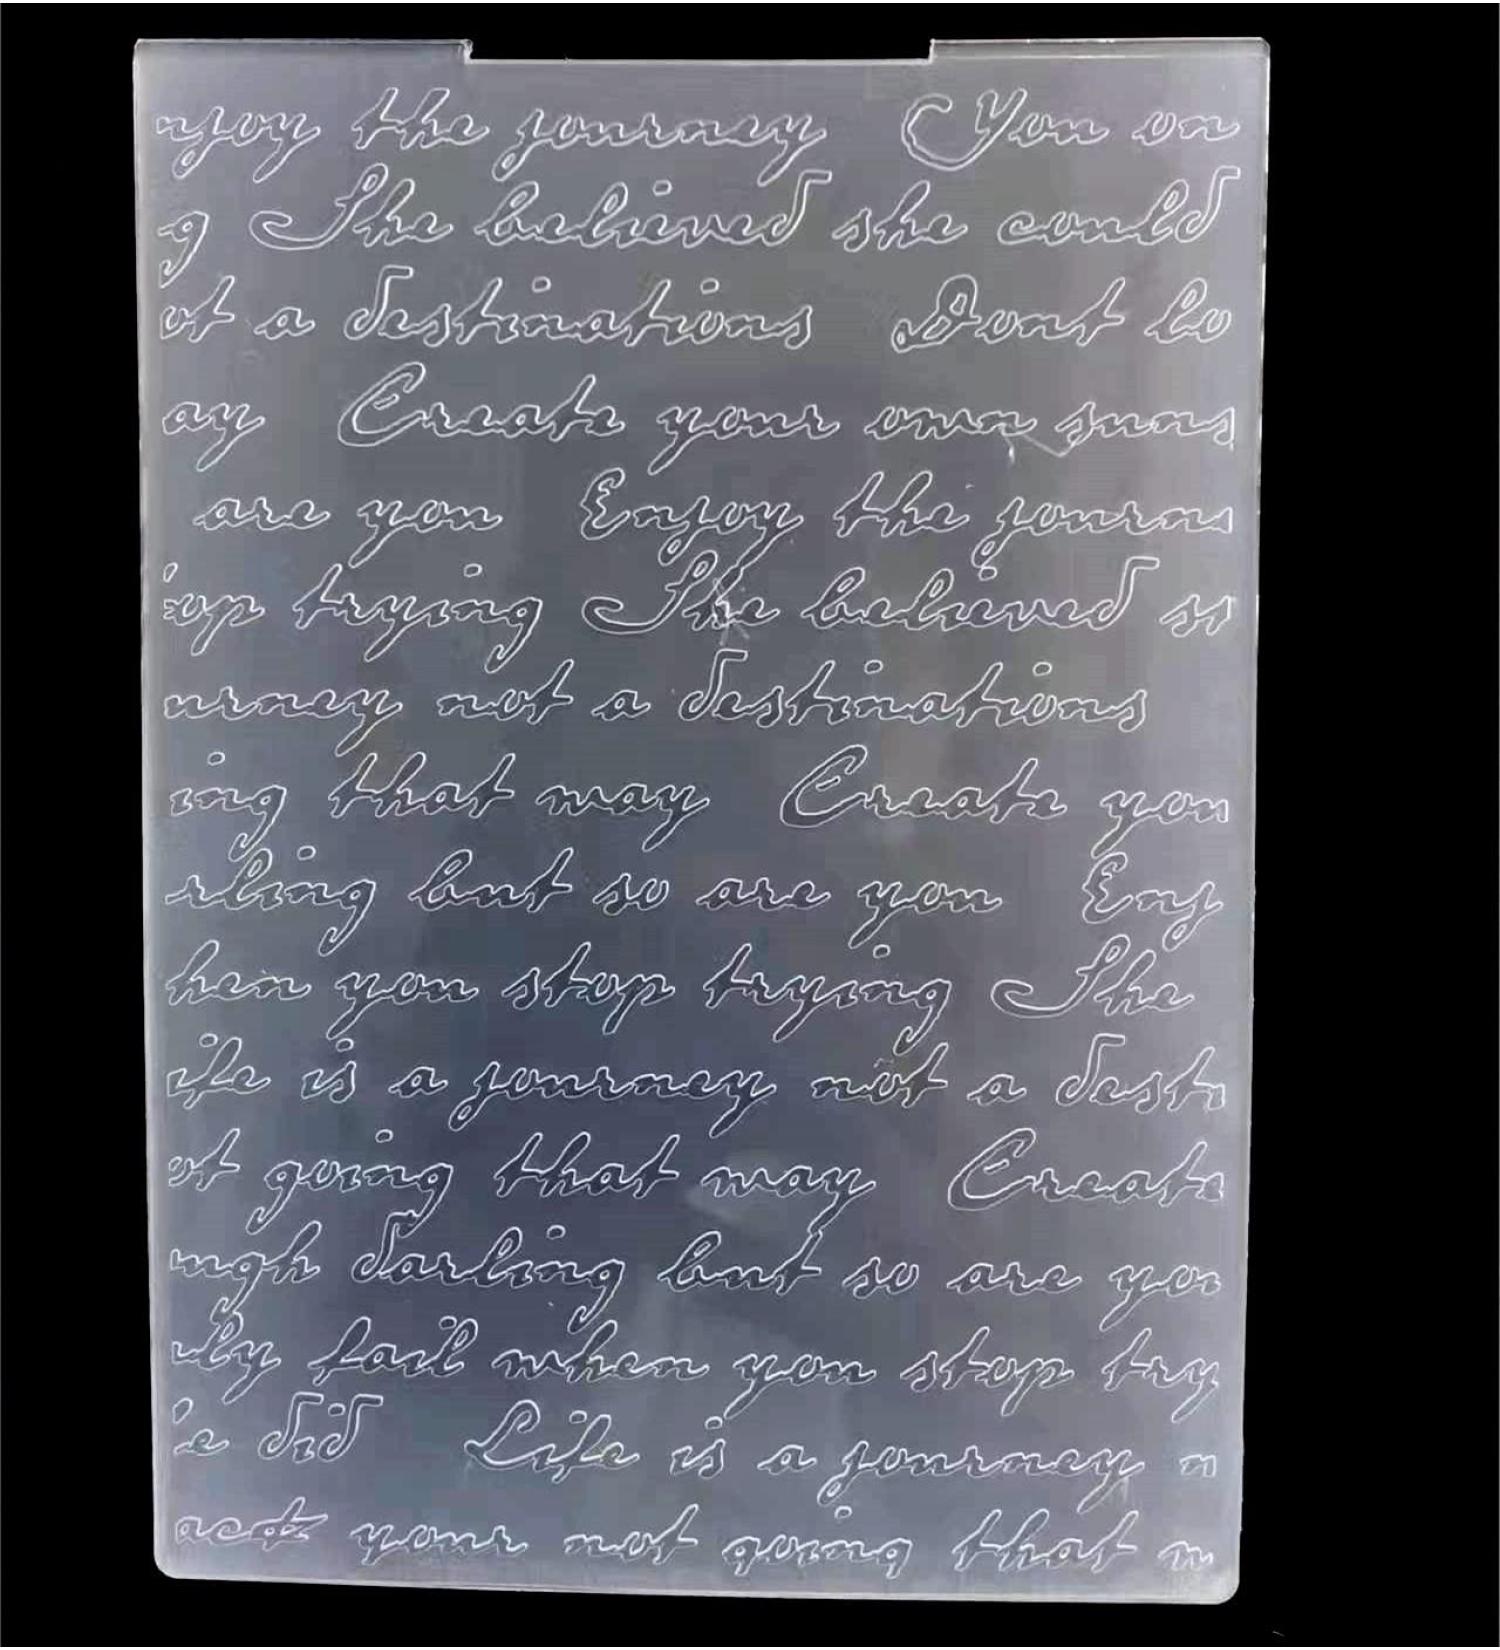 njoy the journey You on
g She believed she could
ot a destinations Dont lo
ay Create your own suns
are you Enjoy the journe
op trying She believed sh
urney not a destinations
ing that may Create you
rling but so are you Enj
hen you stop trying She
ife is a journey not a desti
ot going that may Create
ugh darling but so are you
nly fail when you stop try
e did Life is a journey n
back your not going that m